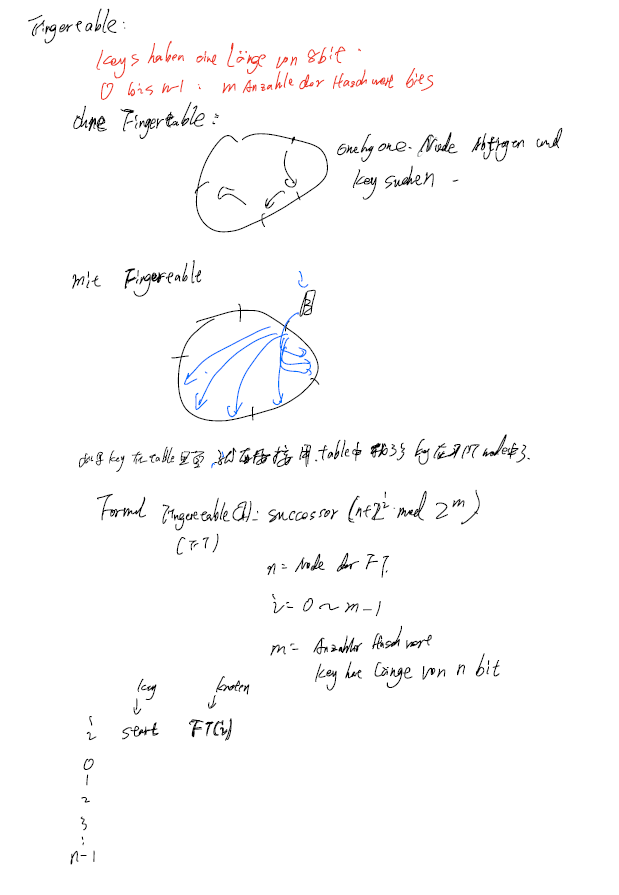 Fingertable:
Keys haben eine Länge von 8bit.
0 bis n-1 : m Anzahle der Hasch wert bits
ohne Fingertable:
one by one. Node Abfragen und
key suchen -
mit Fingertable
i
key 在 table table中 key node中
Formel Fingertable(i): successor (n+2^i mod 2^m)
(FT)
n = Node der FT.
i = 0 ~ m-1
m = Hash wert
key hat Länge von n bit
key knoten
i start FT(i)
0
1
2
3
:
n-1